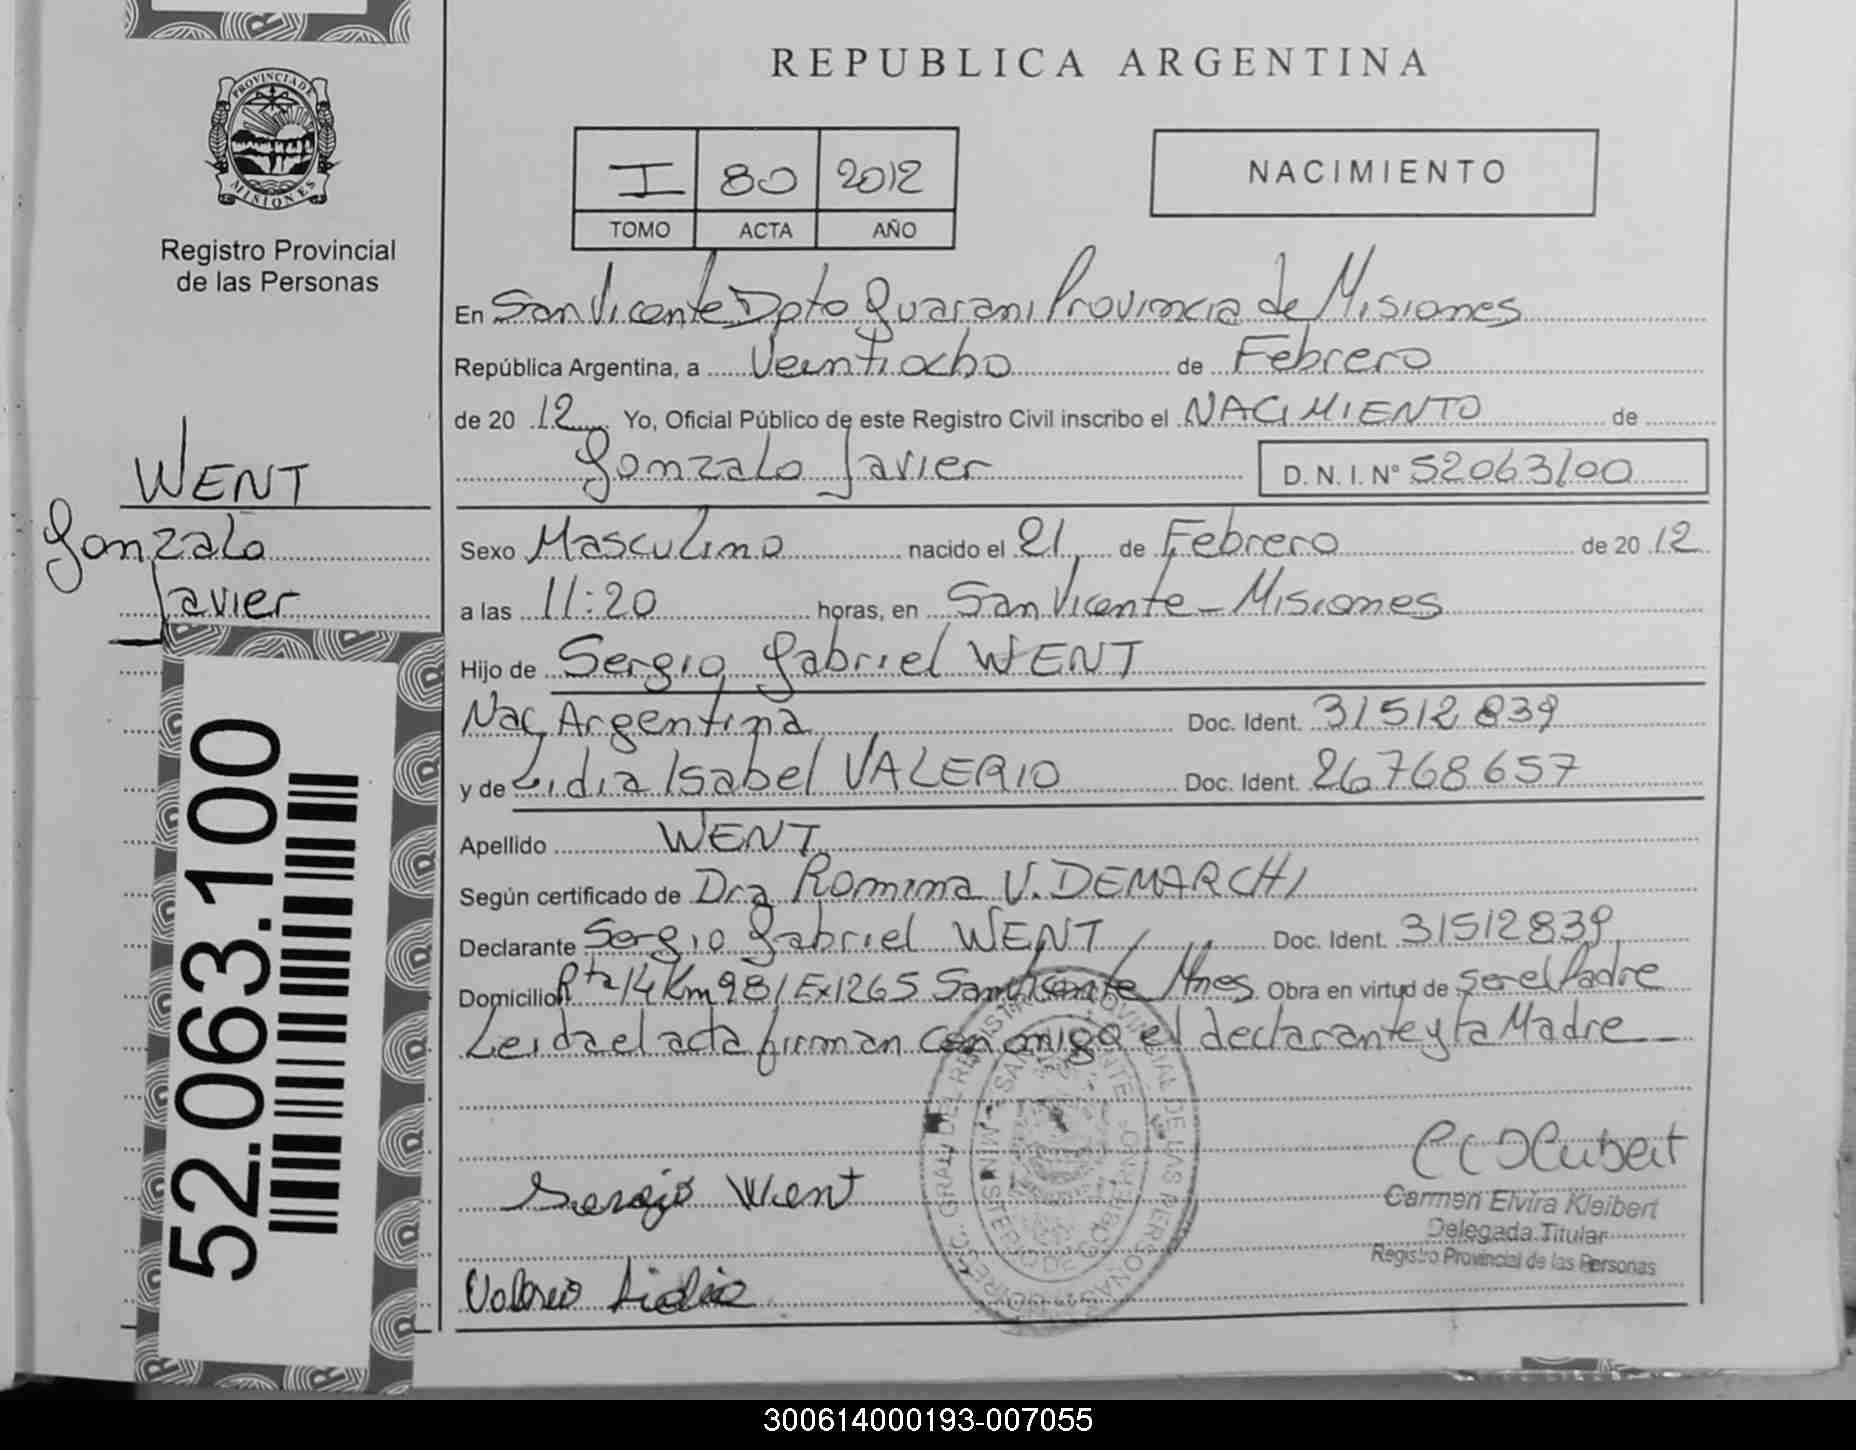 REPUBLICA ARGENTINA
PROVINCIA DE
MISIONES
Registro Provincial
de las Personas
I 80 2012
TOMO ACTA AÑO
NACIMIENTO
En San Vicente Dpto Guarani Provincia de Misiones
República Argentina, a Veintiocho de Febrero
de 20 12 Yo, Oficial Público de este Registro Civil inscribo el NACIMIENTO de
Gonzalo Javier D.N.I. N° 52063100
WENT
Gonzalo
Javier
Sexo Masculino nacido el 21 de Febrero de 20 12
a las 11:20 horas, en San Vicente - Misiones
Hijo de Sergio Gabriel WENT
Nac Argentina Doc. Ident. 31512839
y de Lidia Isabel VALERIO Doc. Ident. 26768657
Apellido WENT
Según certificado de Dra Romina V. DEMARCHI
Declarante Sergio Gabriel WENT Doc. Ident. 31512839
Domicilio Rta 14 Km 981 Ex1265 San Vicente Mnes Obra en virtud de ser el Padre
Leida el acta firman conmigo el declarante y la Madre
52.063.100
Sergio Went
Carmen Elvira Kleibert
Delegada Titular
Registro Provincial de las Personas
Valerio Lidia
300614000193-007055